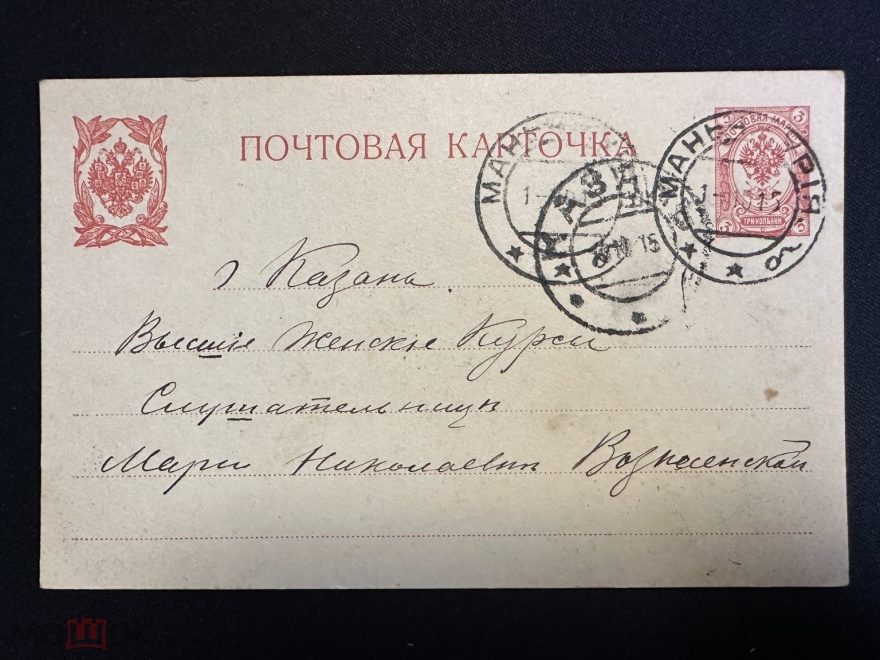 ПОЧТОВАЯ КАРТОЧКА
3 3
ПОЧТОВАЯ МАРКА
ТРИ КОПѢЙКИ
КАЗАНЬ
15
г Казань.
Высшіе Женскіе Курсы
Слушательницѣ
Маріи Николаевнѣ Вознесенской